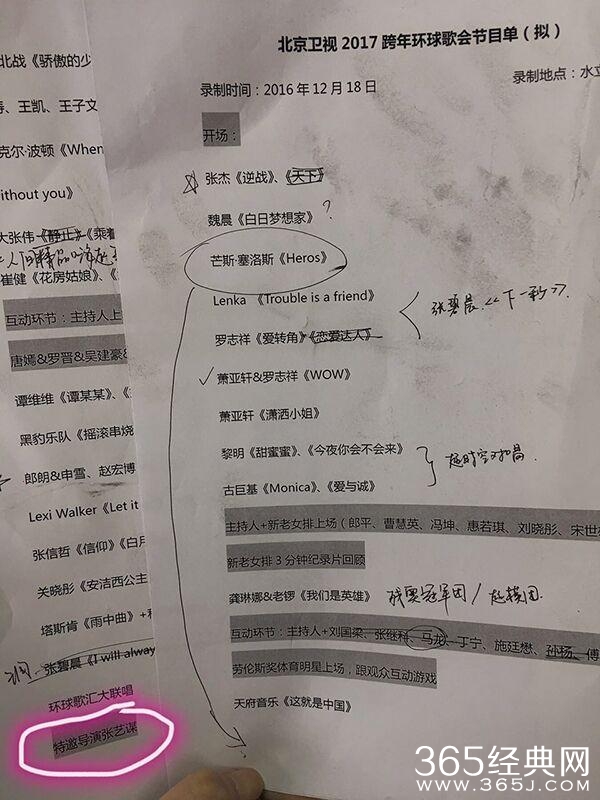 北京卫视 2017 跨年环球歌会节目单（拟）
录制时间：2016 年 12 月 18 日
录制地点：水立
开场：
张杰《逆战》、《天下》
魏晨《白日梦想家》?
芒斯·塞洛斯《Heros》
Lenka 《Trouble is a friend》
张碧晨《下一秒》
罗志祥《爱转角》《恋爱达人》
萧亚轩&罗志祥《WOW》
萧亚轩《潇洒小姐》
黎明《甜蜜蜜》、《今夜你会不会来》
古巨基《Monica》、《爱与诚》
主持人+新老女排上场（郎平、曹慧英、冯坤、惠若琪、刘晓彤、宋世
新老女排 3 分钟纪录片回顾
龚琳娜&老锣《我们是英雄》
互动环节：主持人+刘国梁、张继科、马龙、丁宁、施廷懋、孙杨、傅
劳伦斯奖体育明星上场，跟观众互动游戏
天府音乐《这就是中国》
?
北战《骄傲的少
、王凯、王子文
克尔·波顿《When
ithout you》
大张伟《静止》《乘着
崔健《花房姑娘》、《
互动环节：主持人上
唐嫣&罗晋&吴建豪&
谭维维《谭某某》、《
黑豹乐队《摇滚串烧
郎朗&申雪、赵宏博
Lexi Walker《Let it
张信哲《信仰》《白月
关晓彤《安洁西公主
塔斯肯《雨中曲》+
张碧晨《I will alway
环球歌汇大联唱
特邀导演张艺谋
365经典网
www.365J.com